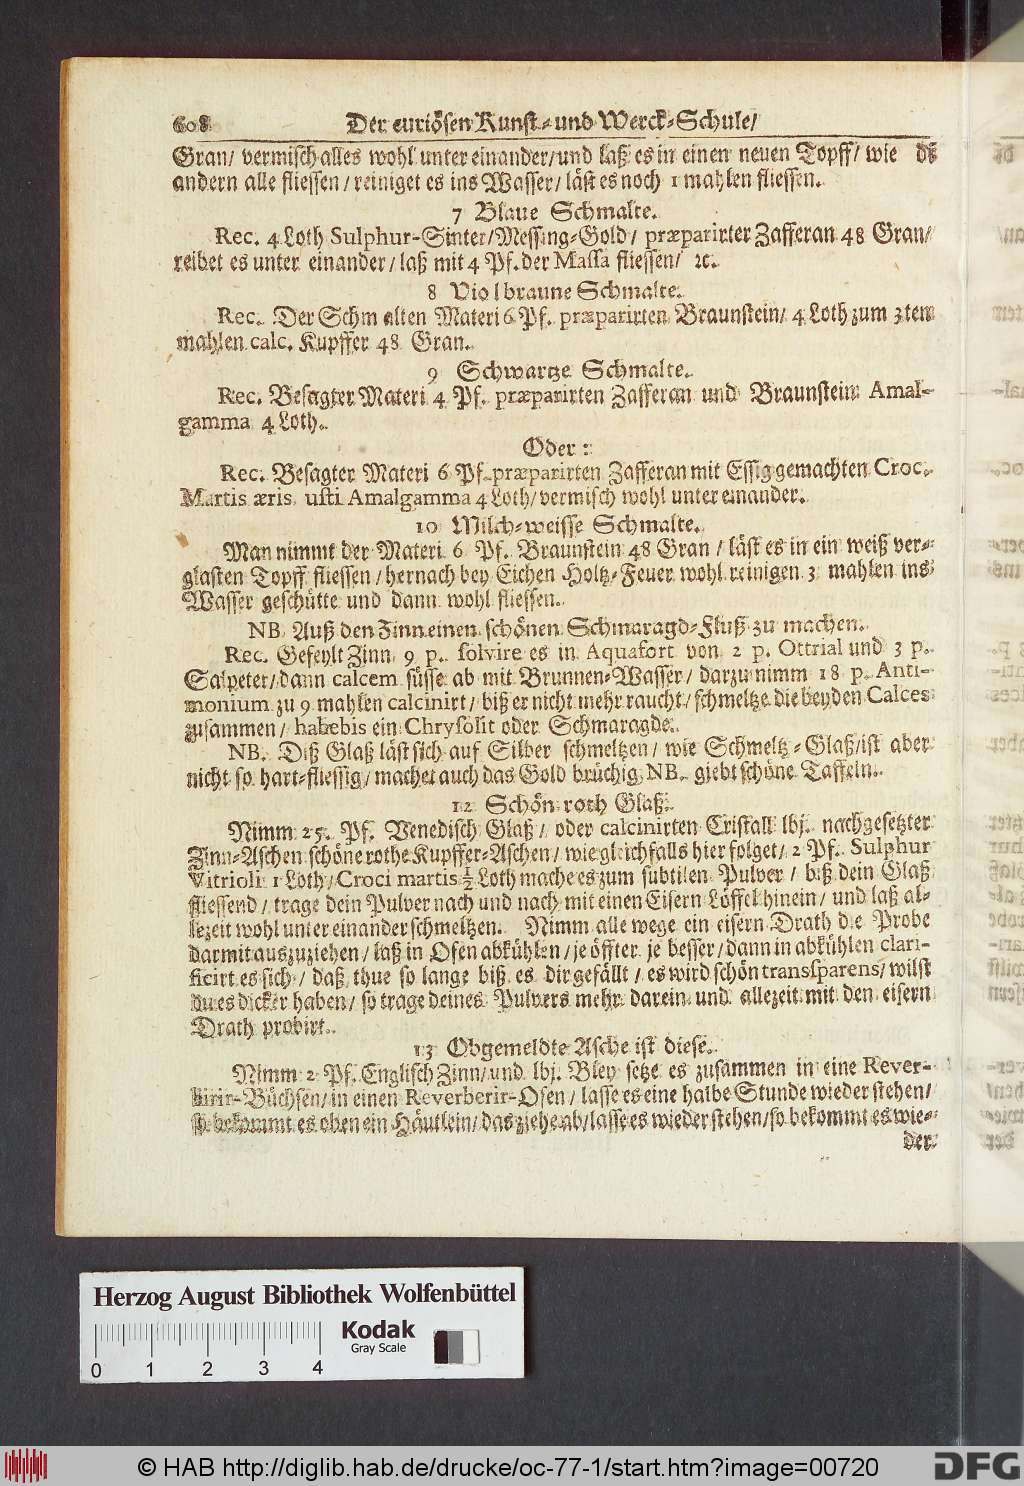 608 Der curiösen Kunst- und Werck-Schule/
Gran/ vermisch alles wohl unter einander/ und laß es in einen neuen Topff/ wie die
andern alle fliessen/ reiniget es ins Wasser/ läst es noch 1 mahlen fliessen.
7 Blaue Schmalte.
Rec. 4 Loth Sulphur-Sinter/ Messing-Gold/ præparirter Zafferan 48 Gran/
reibet es unter einander/ laß mit 4 Pf. der Massa fliessen/ ꝛc.
8 Violbraune Schmalte.
Rec. Der Schmalten Materi 6 Pf. præparirten Braunstein/ 4 Loth zum 3ten
mahlen calc. Kupffer 48 Gran.
9 Schwartze Schmalte.
Rec. Besagter Materi 4 Pf. præparirten Zafferan und Braunstein Amal-
gamma 4 Loth.
Oder:
Rec. Besagter Materi 6 Pf. præparirten Zafferan mit Essig gemachten Croc.
Martis æris usti Amalgamma 4 Loth/ vermisch wohl unter einander.
10 Milch-weisse Schmalte.
Man nimmt der Materi 6 Pf. Braunstein 48 Gran/ läst es in ein weiß ver-
glasten Topff fliessen/ hernach bey Eichen Holtz-Feuer wohl reinigen 3 mahlen ins
Wasser geschütte und dann wohl fliessen.
NB. Auß den Zinn einen schönen Schmaragd-Fluß zu machen.
Rec. Gefeylt Zinn 9 p. solvire es in Aquafort von 2 p. Ottrial und 3 p.
Salpeter/ dann calcem süsse ab mit Brunnen-Wasser/ darzu nimm 18 p. Anti-
monium zu 9 mahlen calcinirt/ biß er nicht mehr raucht/ schmeltze die beyden Calces
zusammen/ habebis ein Chrysolit oder Schmaragde.
NB. Diß Glaß läst sich auf Silber schmeltzen/ wie Schmeltz-Glaß/ ist aber
nicht so hart-fliessig/ machet auch das Gold brüchig NB. giebt schöne Taffeln.
12 Schön roth Glaß.
Nimm 25. Pf. Venedisch Glaß/ oder calcinirten Cristall lbj. nachgesetzter
Zinn-Aschen schöne rothe Kupffer-Aschen/ wie gleichfalls hier folget/ 2 Pf. Sulphur
Vitrioli 1 Loth/ Croci martis ½ Loth mache es zum subtilen Pulver/ biß dein Glaß
fliessend/ trage dein Pulver nach und nach mit einen Eisern Löffel hinein/ und laß al-
lezeit wohl unter einander schmeltzen. Nimm alle wege ein eisern Drath die Probe
darmit auszuziehen/ laß in Ofen abkühlen/ je öffter je besser/ dann in abkühlen clari-
ficirt es sich/ daß thue so lange biß es dir gefällt/ es wird schön transsparens/ wilst
du es dicker haben/ so trage deines Pulvers mehr darein und allezeit mit den eisern
Drath probirt.
13 Obgemeldte Asche ist diese.
Nimm 2 Pf. Englisch Zinn/ und lbj. Bley setze es zusammen in eine Rever-
birir-Büchsen/ in einen Reverberir-Ofen/ lasse es eine halbe Stunde wieder stehen/
so bekommt es oben ein Häutlein/ das ziehe ab/ lasse es wieder stehen/ so bekommt es wie-
der
Herzog August Bibliothek Wolfenbüttel
Kodak
Gray Scale
0 1 2 3 4
© HAB http://diglib.hab.de/drucke/oc-77-1/start.htm?image=00720
DFG